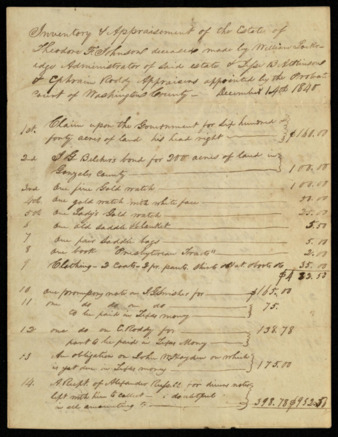 Inventory & Appraisement of the Estate of
Theodore F. Johnson deceased made by William
Administrator of said estate & B Atkinson
& Ephraim Roddy Appraisers appointed by the Probate
Court of Washington County — December 14th 1840
1st. Claim upon the Government for Six hundred &
forty acres of land his head right — $160.00
2nd S G Belchers bond for 200 acres of land in
Gonzales County — 100.00
3rd One fine Gold watch — 100.00
4th One gold watch with white face
5th One Lady's Gold watch — 25.00
6 One old saddle & blanket — 5.00
7 One pair Saddle bags — 5.00
8 One book "Presbyterian Tracts"
9 Clothing - 2 Coats 3 pr pants — 35.00
10 one promisory note on — for — $165.00
11 one do do on do — 75.
to be paid in Texas money
12 one do on E Roddy for — 138.78
part to be paid in Texas Money
13 An obligation on John on which
is yet due in Texas money — 175.00
14. A Recpt. of Alexander Russell for divers notes
left with him to collect — doubtful
in all amounting to — 398.78 $952.51